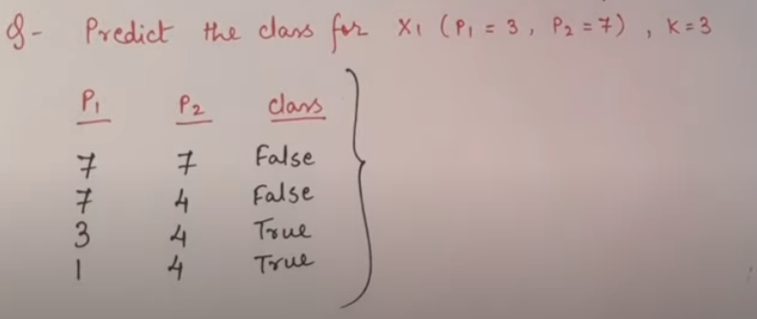 Q- Predict the class for X1 (P1 = 3, P2 = 7), K=3
P1 P2 class
7 7 False
7 4 False
3 4 True
1 4 True